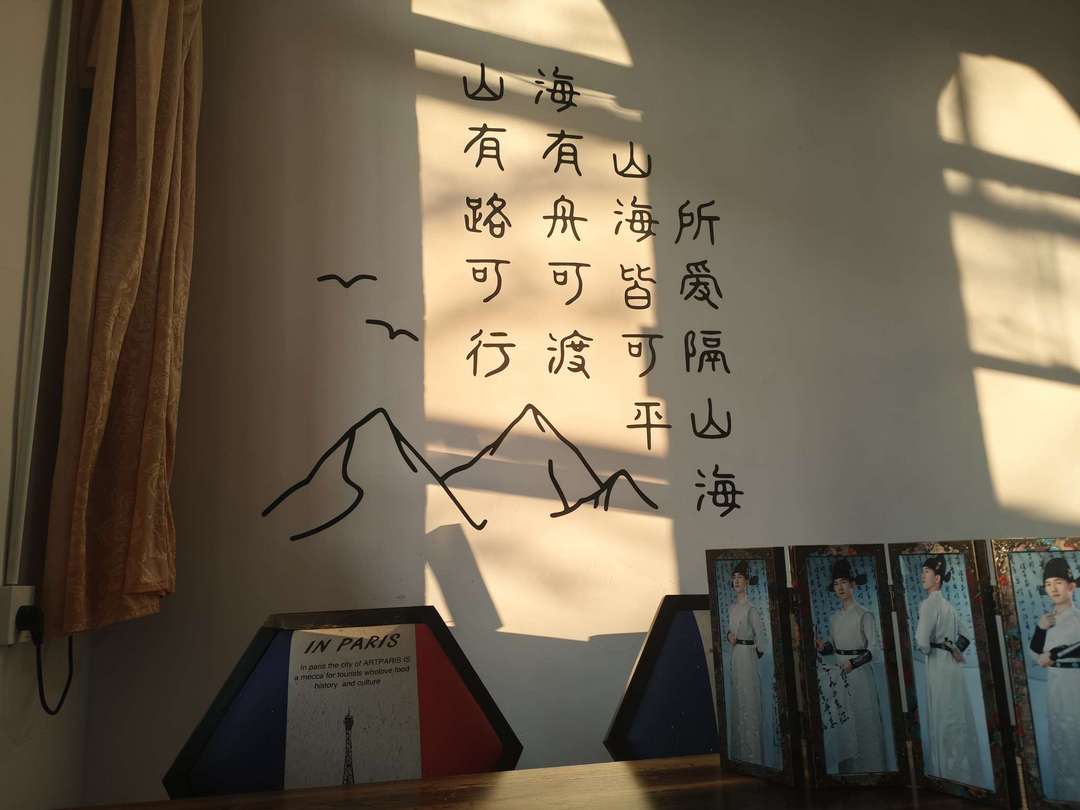 所爱隔山海
山海皆可平
海有舟可渡
山有路可行
IN PARIS
In paris the city of ARTPARIS IS
a mecca for tourists wholove food
history and culture